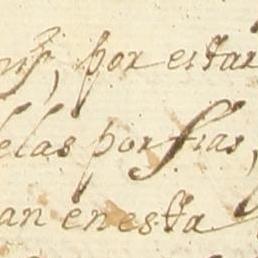 , por estar
elas porfias,
an en esta